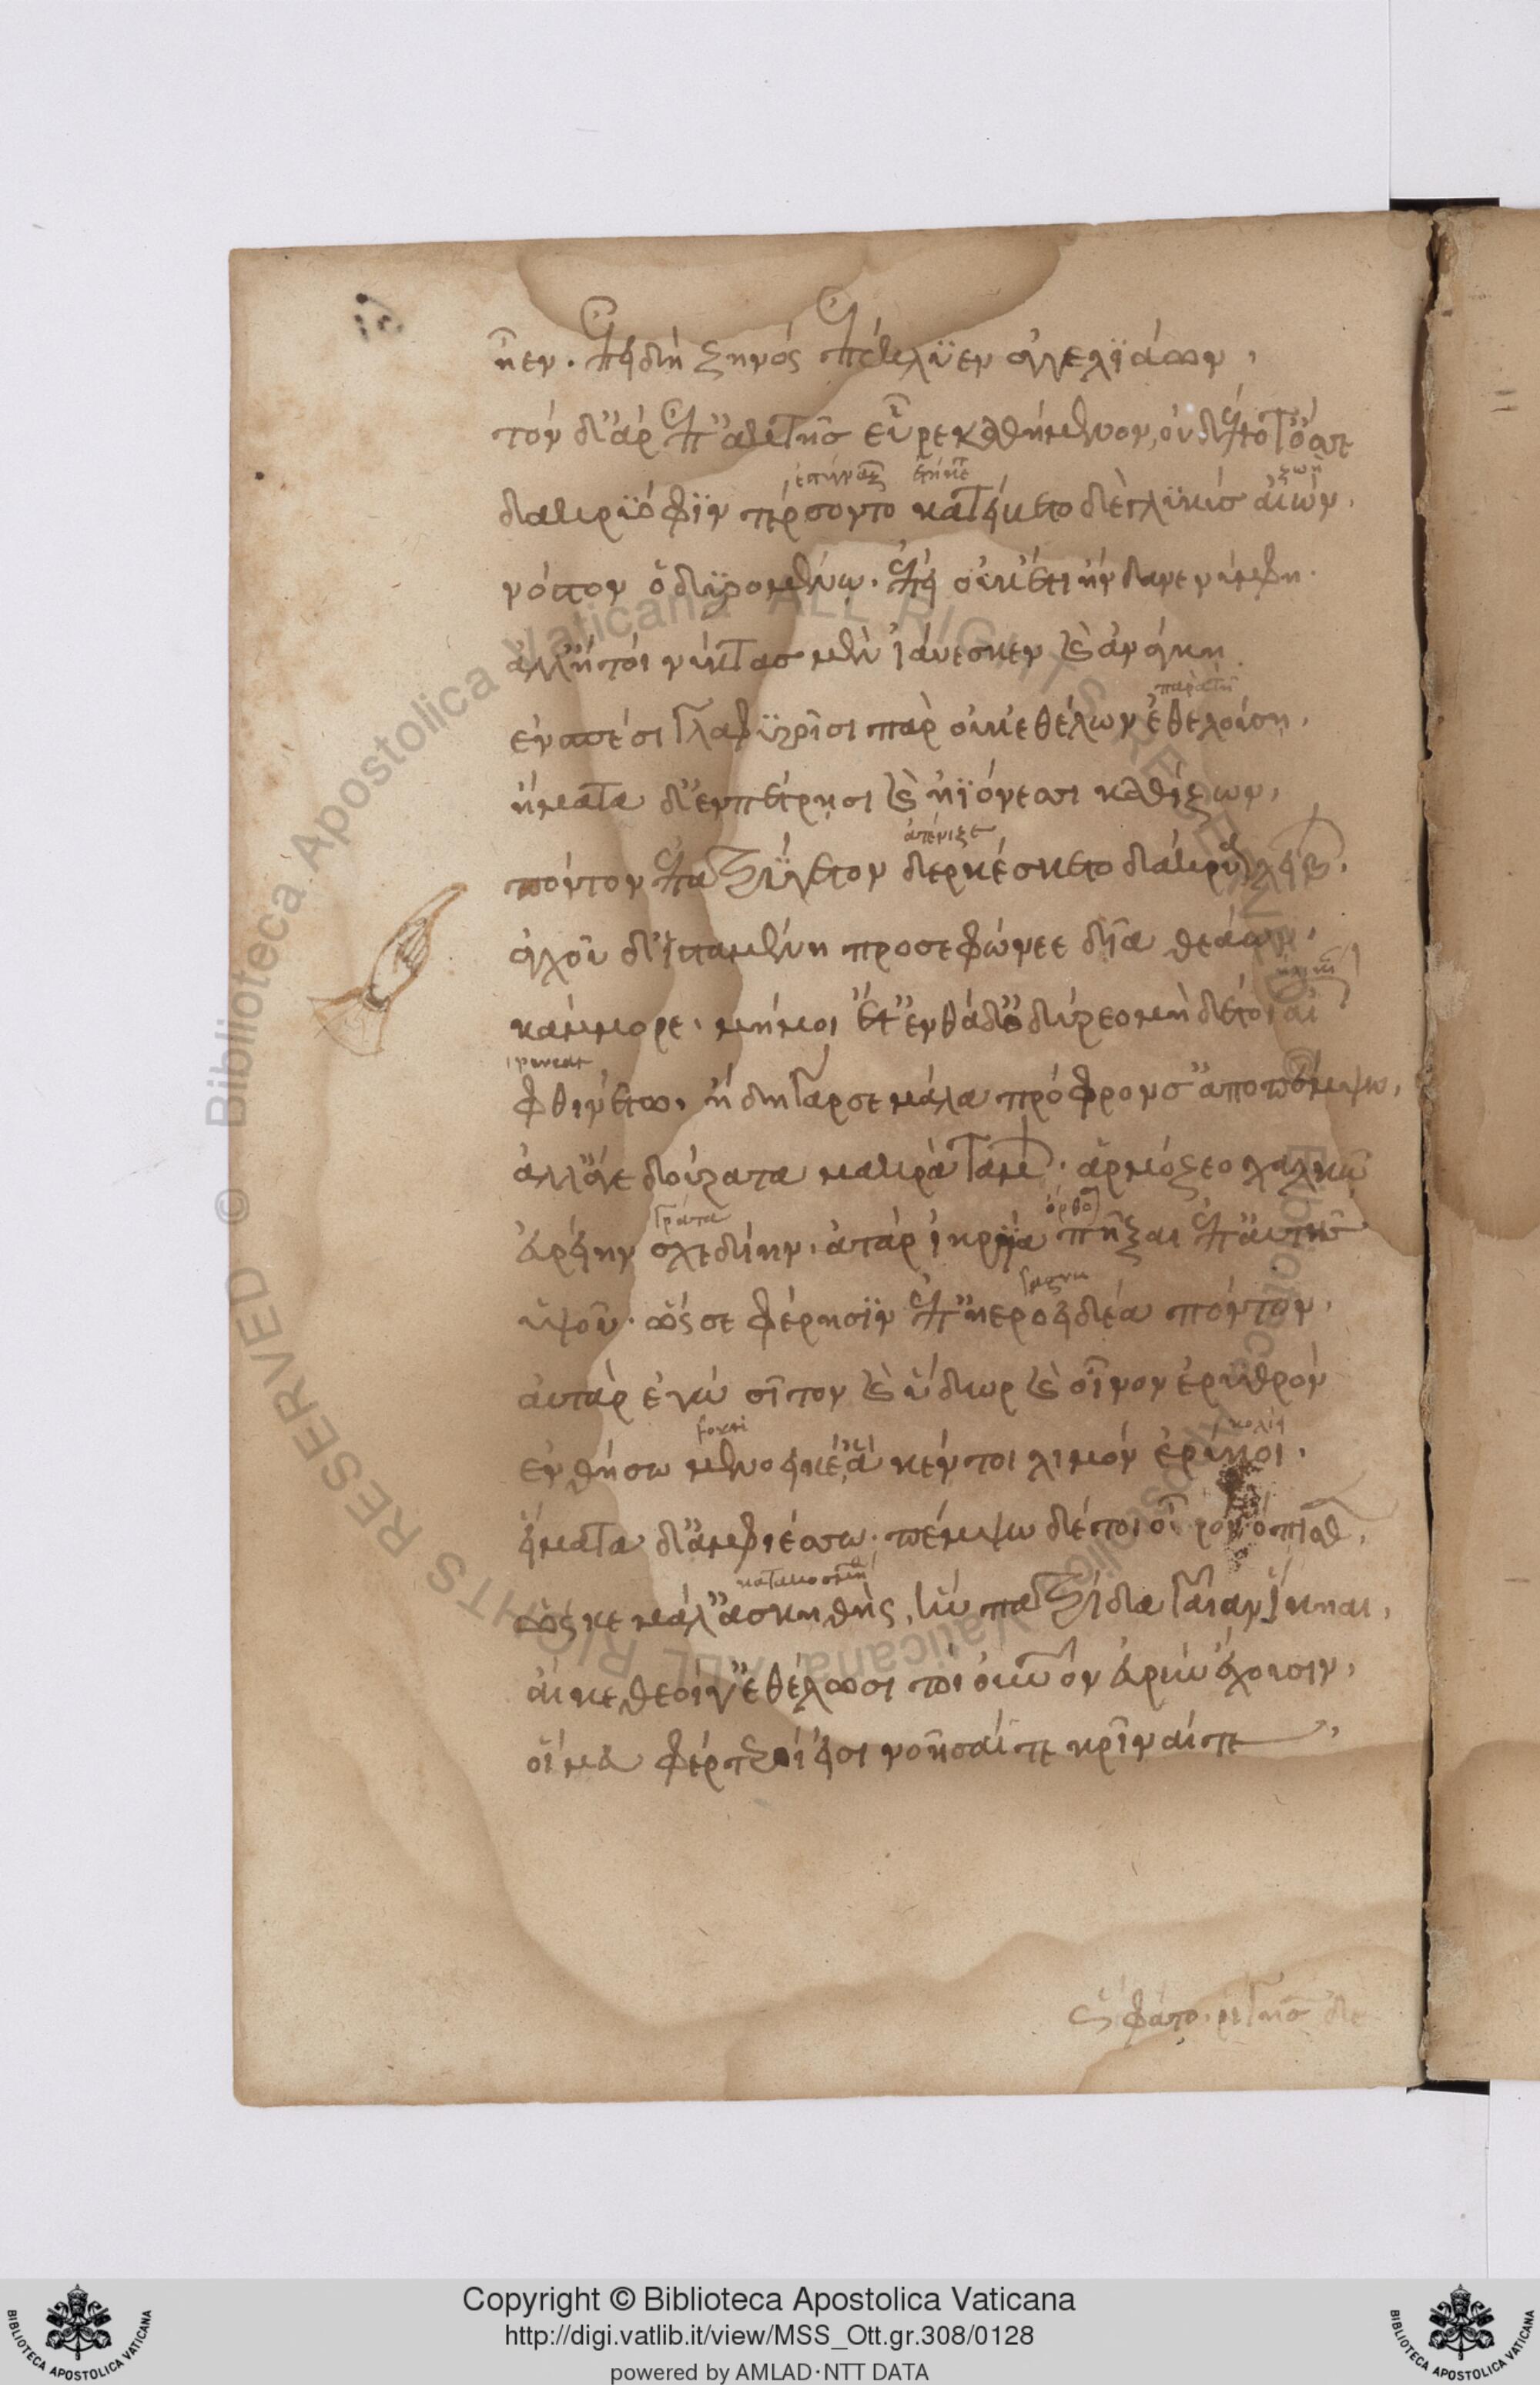 ἤϊεν. ἐπειδὴ ζηνὸς ἐπέκλυεν ἀγγελϊάων,
τὸν δ' ἄρ ἐπ' ἀκτῆς εὗρε καθήμενον, οὐδέποτ' ὄσσε
ζωὴ
δακρυόφϊν τέρσοντο κατείβετο δὲ γλυκὺς αἰὼν,
νόστον ὀδϋρομένω. ἐπεὶ οὐκέτι ἥνδανε νύμφη.
ἀλλ' ἤτοι νύκτας μὲν ἰάυεσκεν καὶ ἀνάγκη
ἐν σπέσι γλαφϋροῖσι παρ' οὐκ ἐθέλων ἐθελούση,
ἤματα δ' ἐν πέτρησι καὶ ἠϊόνεσσι καθίζων,
πόντον ἐπ' ἀτρύγετον δερκέσκετο δάκρυα λείβων.
ἀγχοῦ δ' ἱσταμένη προσεφώνεε δῖα θεάων,
κάμμορε, μή μοι ἔτ' ἐνθάδ' ὀδύρεο μὴ δέ τοι αἰὼν
φθινέτω, ἤδη γάρ σε μάλα πρόφρονσ' ἀποπέμψω,
ἀλλ' ἄγε δούρατα μακρὰ ταμὼν. ἁρμόζεο χαλκῶ
εὐρεῖην σχεδίην, ἀτὰρ ἴκρϊα πῆξαι ἐπ' αὐτῆς
ὑψοῦ. ὥς σε φέρησϊν ἐπ' ἠεροειδέα πόντον,
αὐτὰρ ἐγὼ σῖτον καὶ ὕδωρ καὶ οἶνον ἐρυθρὸν
ἐνθήσω μενοεικέ' ἅ κέν τοι λιμὸν ἐρύκοι.
εἵματα δ' ἀμφιέσω. πέμψω δέ τοι οὖρον ὄπισθεν,
ὥς κε μάλ' ἀσκηθὴς, σὴν πατρίδα γαῖαν ἵκηαι,
αἴ κε θεοί γ' ἐθέλωσι τοὶ οὐρανὸν εὐρὺν ἔχουσιν,
οἵ μευ φέρτεροί εἰσι νοῆσαί τε κρῖναί τε
Ὣς φάτο. ῥίγησεν δὲ
Copyright © Biblioteca Apostolica Vaticana
http://digi.vatlib.it/view/MSS_Ott.gr.308/0128
powered by AMLAD·NTT DATA
BIBLIOTECA APOSTOLICA VATICANA
BIBLIOTECA APOSTOLICA VATICANA